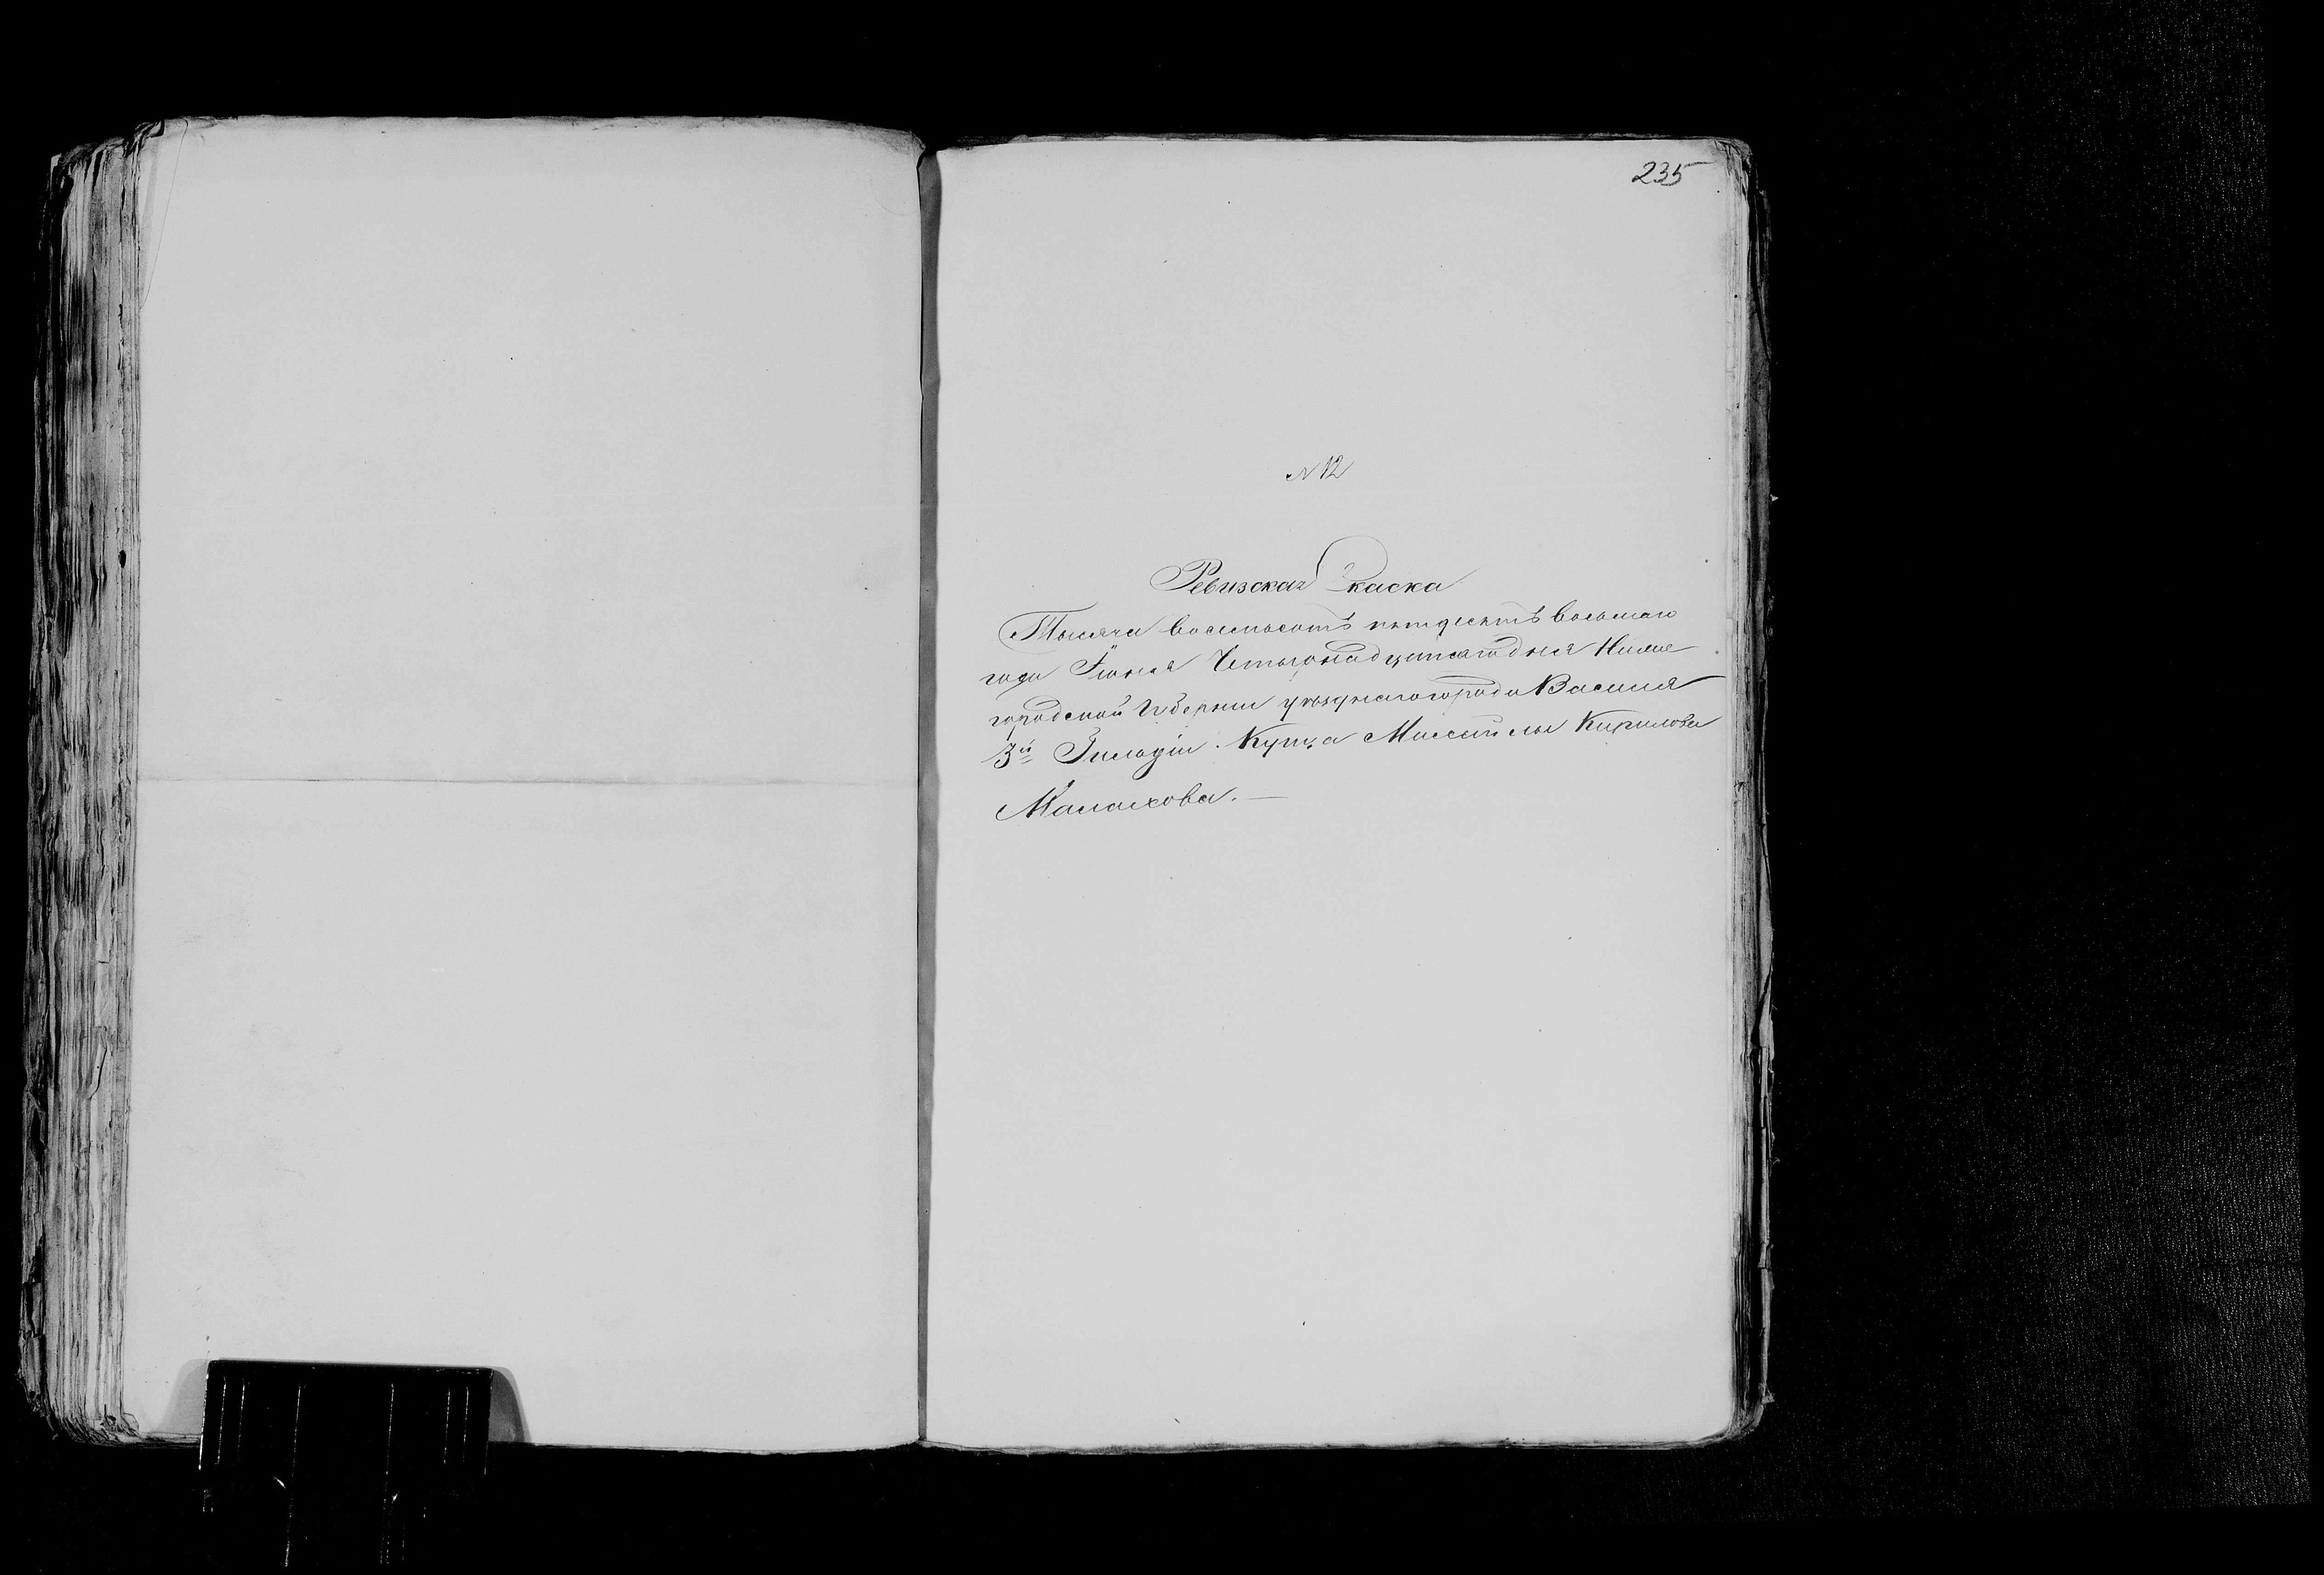 235
№ 12
Ревизская Скаска
Тысяча восемьсотъ пятдесятъ восьмаго
года Іюня Четырнадцатагодня Ниже
городской Губернiи уѣзднагогорода Василя
3й Гильдiи Купца Михайлы Кирилова
Малахова. —